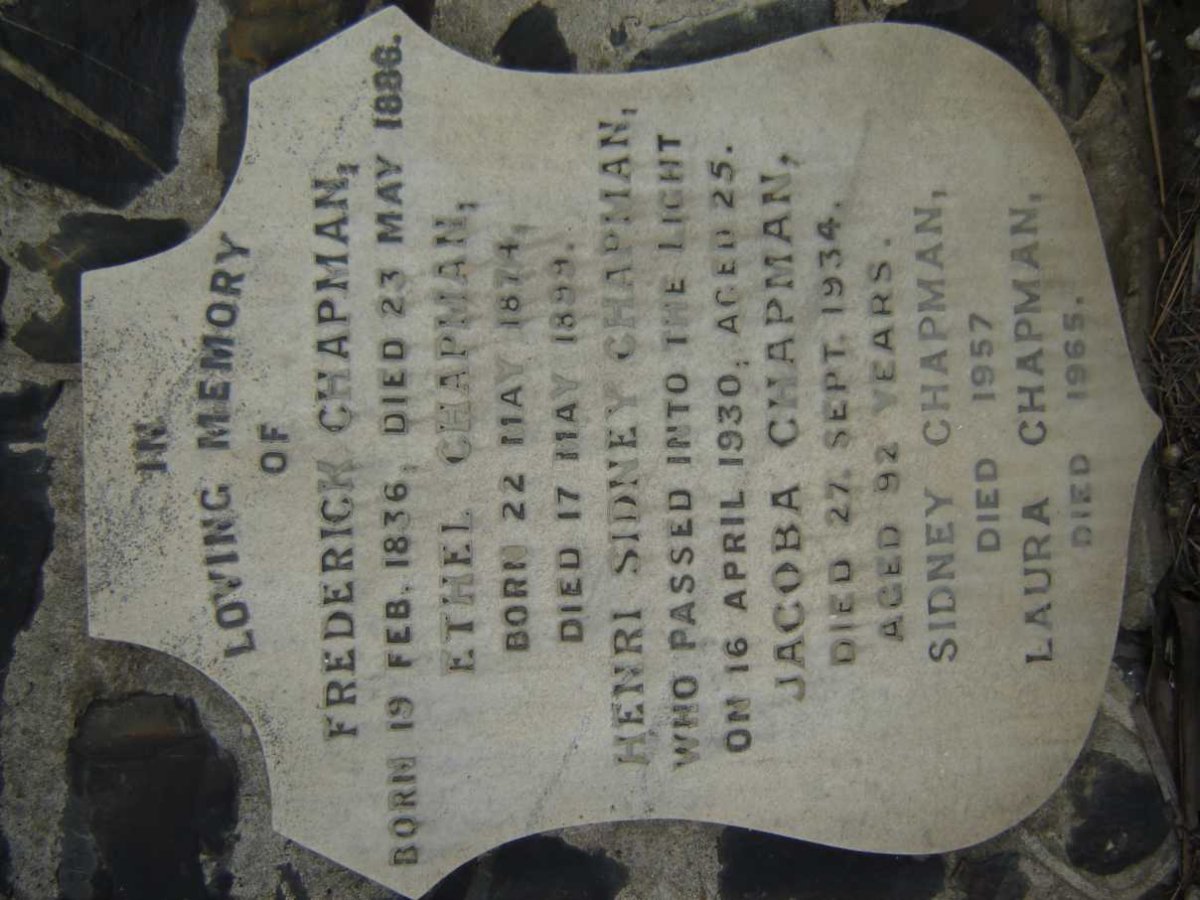 IN
LOVING MEMORY
OF
FREDERICK CHAPMAN,
BORN 19 FEB. 1836, DIED 23 MAY 1886.
ETHEL CHAPMAN,
BORN 22 MAY 1874,
DIED 17 MAY 1899.
HENRI SIDNEY CHAPMAN,
WHO PASSED INTO THE LIGHT
ON 16 APRIL 1930, AGED 25.
JACOBA CHAPMAN,
DIED 27. SEPT. 1934.
AGED 92 YEARS.
SIDNEY CHAPMAN,
DIED 1957
LAURA CHAPMAN,
DIED 1965.